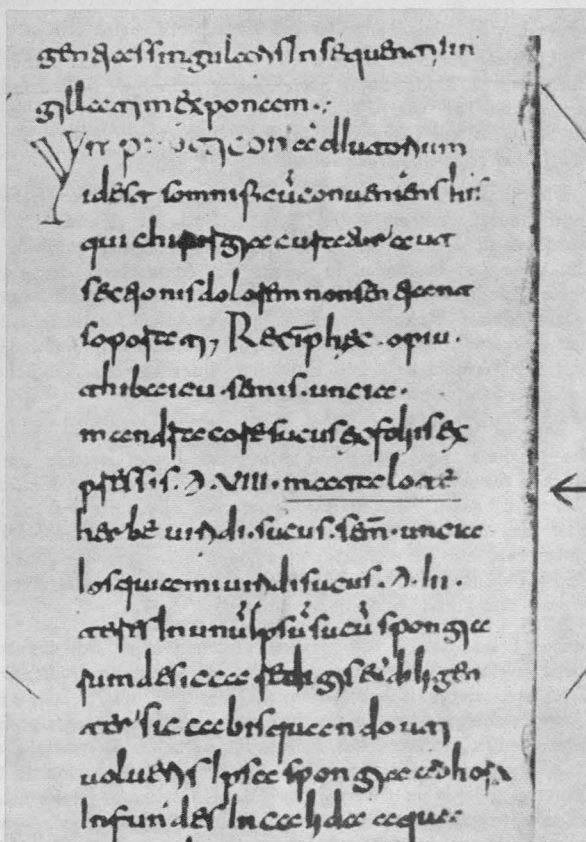 gendas singularis In sequenti sin
gillatim exponam .;
Ypnoticon adIutorium
idest somnificū conveniens his
qui chirurgia aut
sectionis dolorem non sentiant
soporati, Recip̄ hec . opiu .
thibaicu . semis . uncia .
mandracore sucus ex foliis ex
pressis . VIII .
herbe viridi . sucus . sem̄ . uncia
Iosquiami viridi sucus . III .
teres In unū Ipsū sucū spongia
fundes diligen
ter siccabis quando uti
volueris Ipsa spongia
Infundes In calida aqua